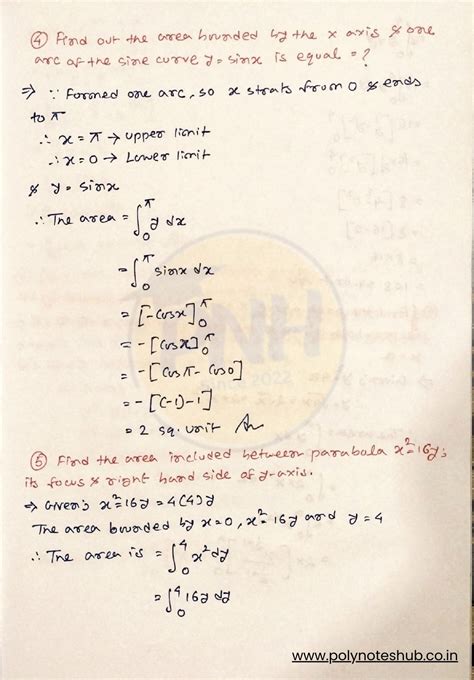 ④ Find out the area bounded by the x axis & one
arc of the sine curve y = sinx is equal = ?
⇒ ∵ Formed one arc, so x strats from 0 & ends
to π
∴ x = π → upper limit
∴ x = 0 → Lower limit
& y = sinx
∴ The area = ∫₀^π y dx
= ∫₀^π sinx dx
= [-cosx]₀^π
= -[cosx]₀^π
= -[cosπ - cos0]
= -[(-1)-1]
= 2 sq. unit
⑤ Find the area included between parabola x²=16y,
its focus & right hand side of y-axis.
⇒ Given; x²=16y = 4(4)y
The area bounded by x=0, x²=16y and y=4
∴ The area is = ∫₀⁴ x² dy
= ∫₀⁴ 16y dy
PNH
Since 2022
www.polynoteshub.co.in